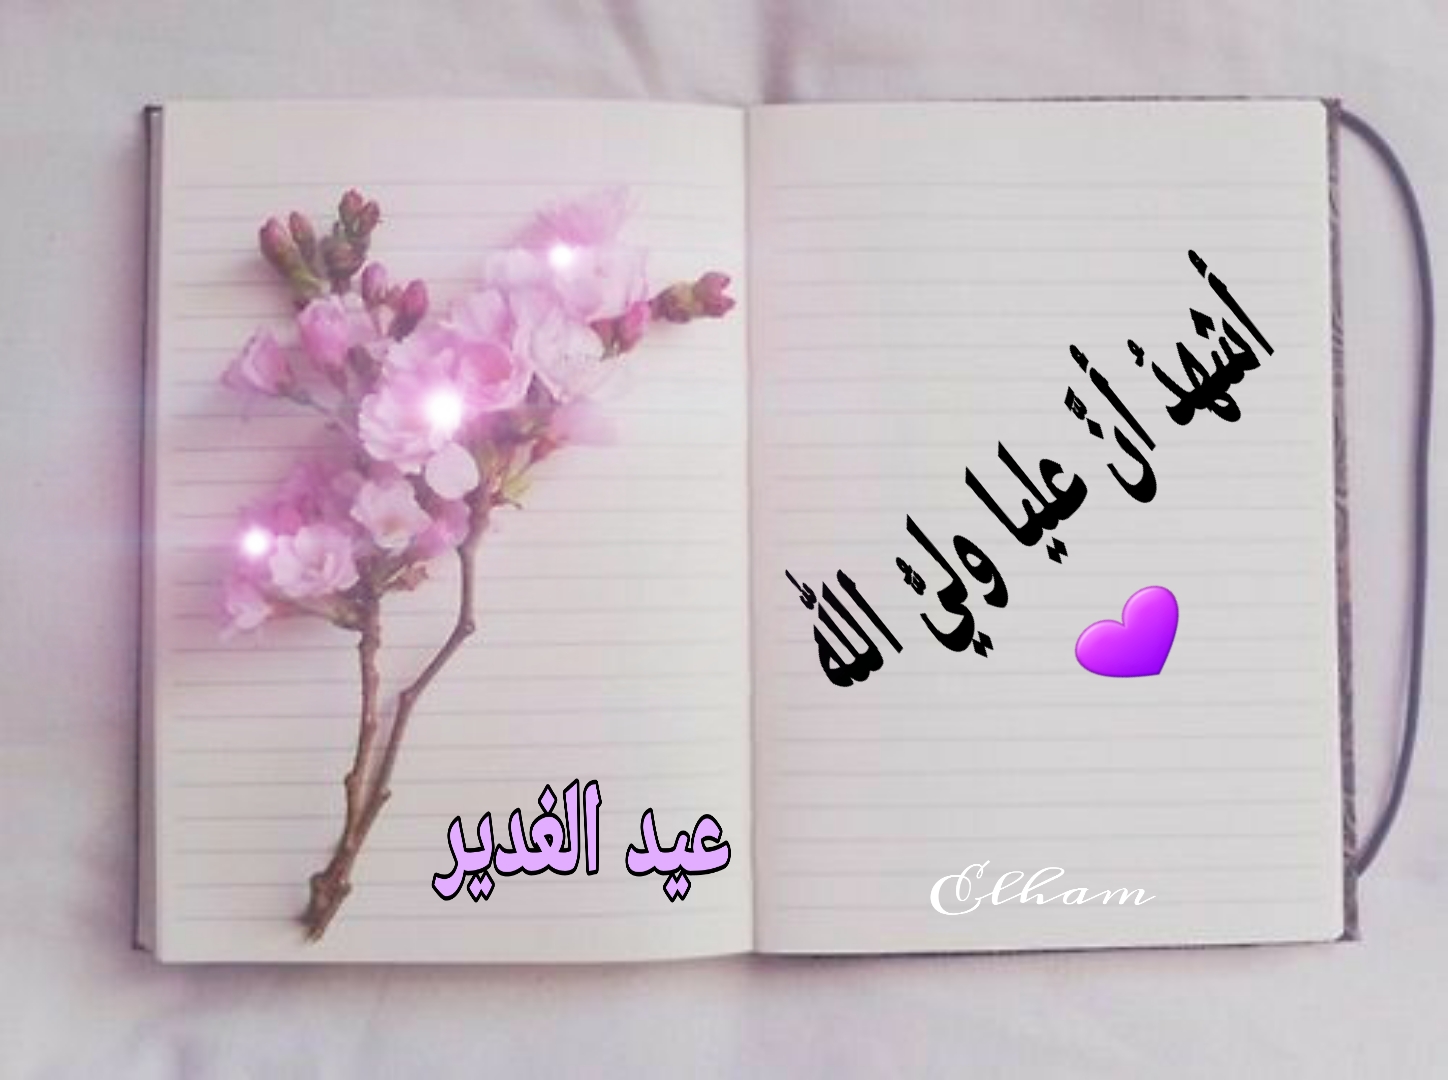 أشهدُ أنّ عليا وليُّ اللّٰه
عيد الغدير
Elham